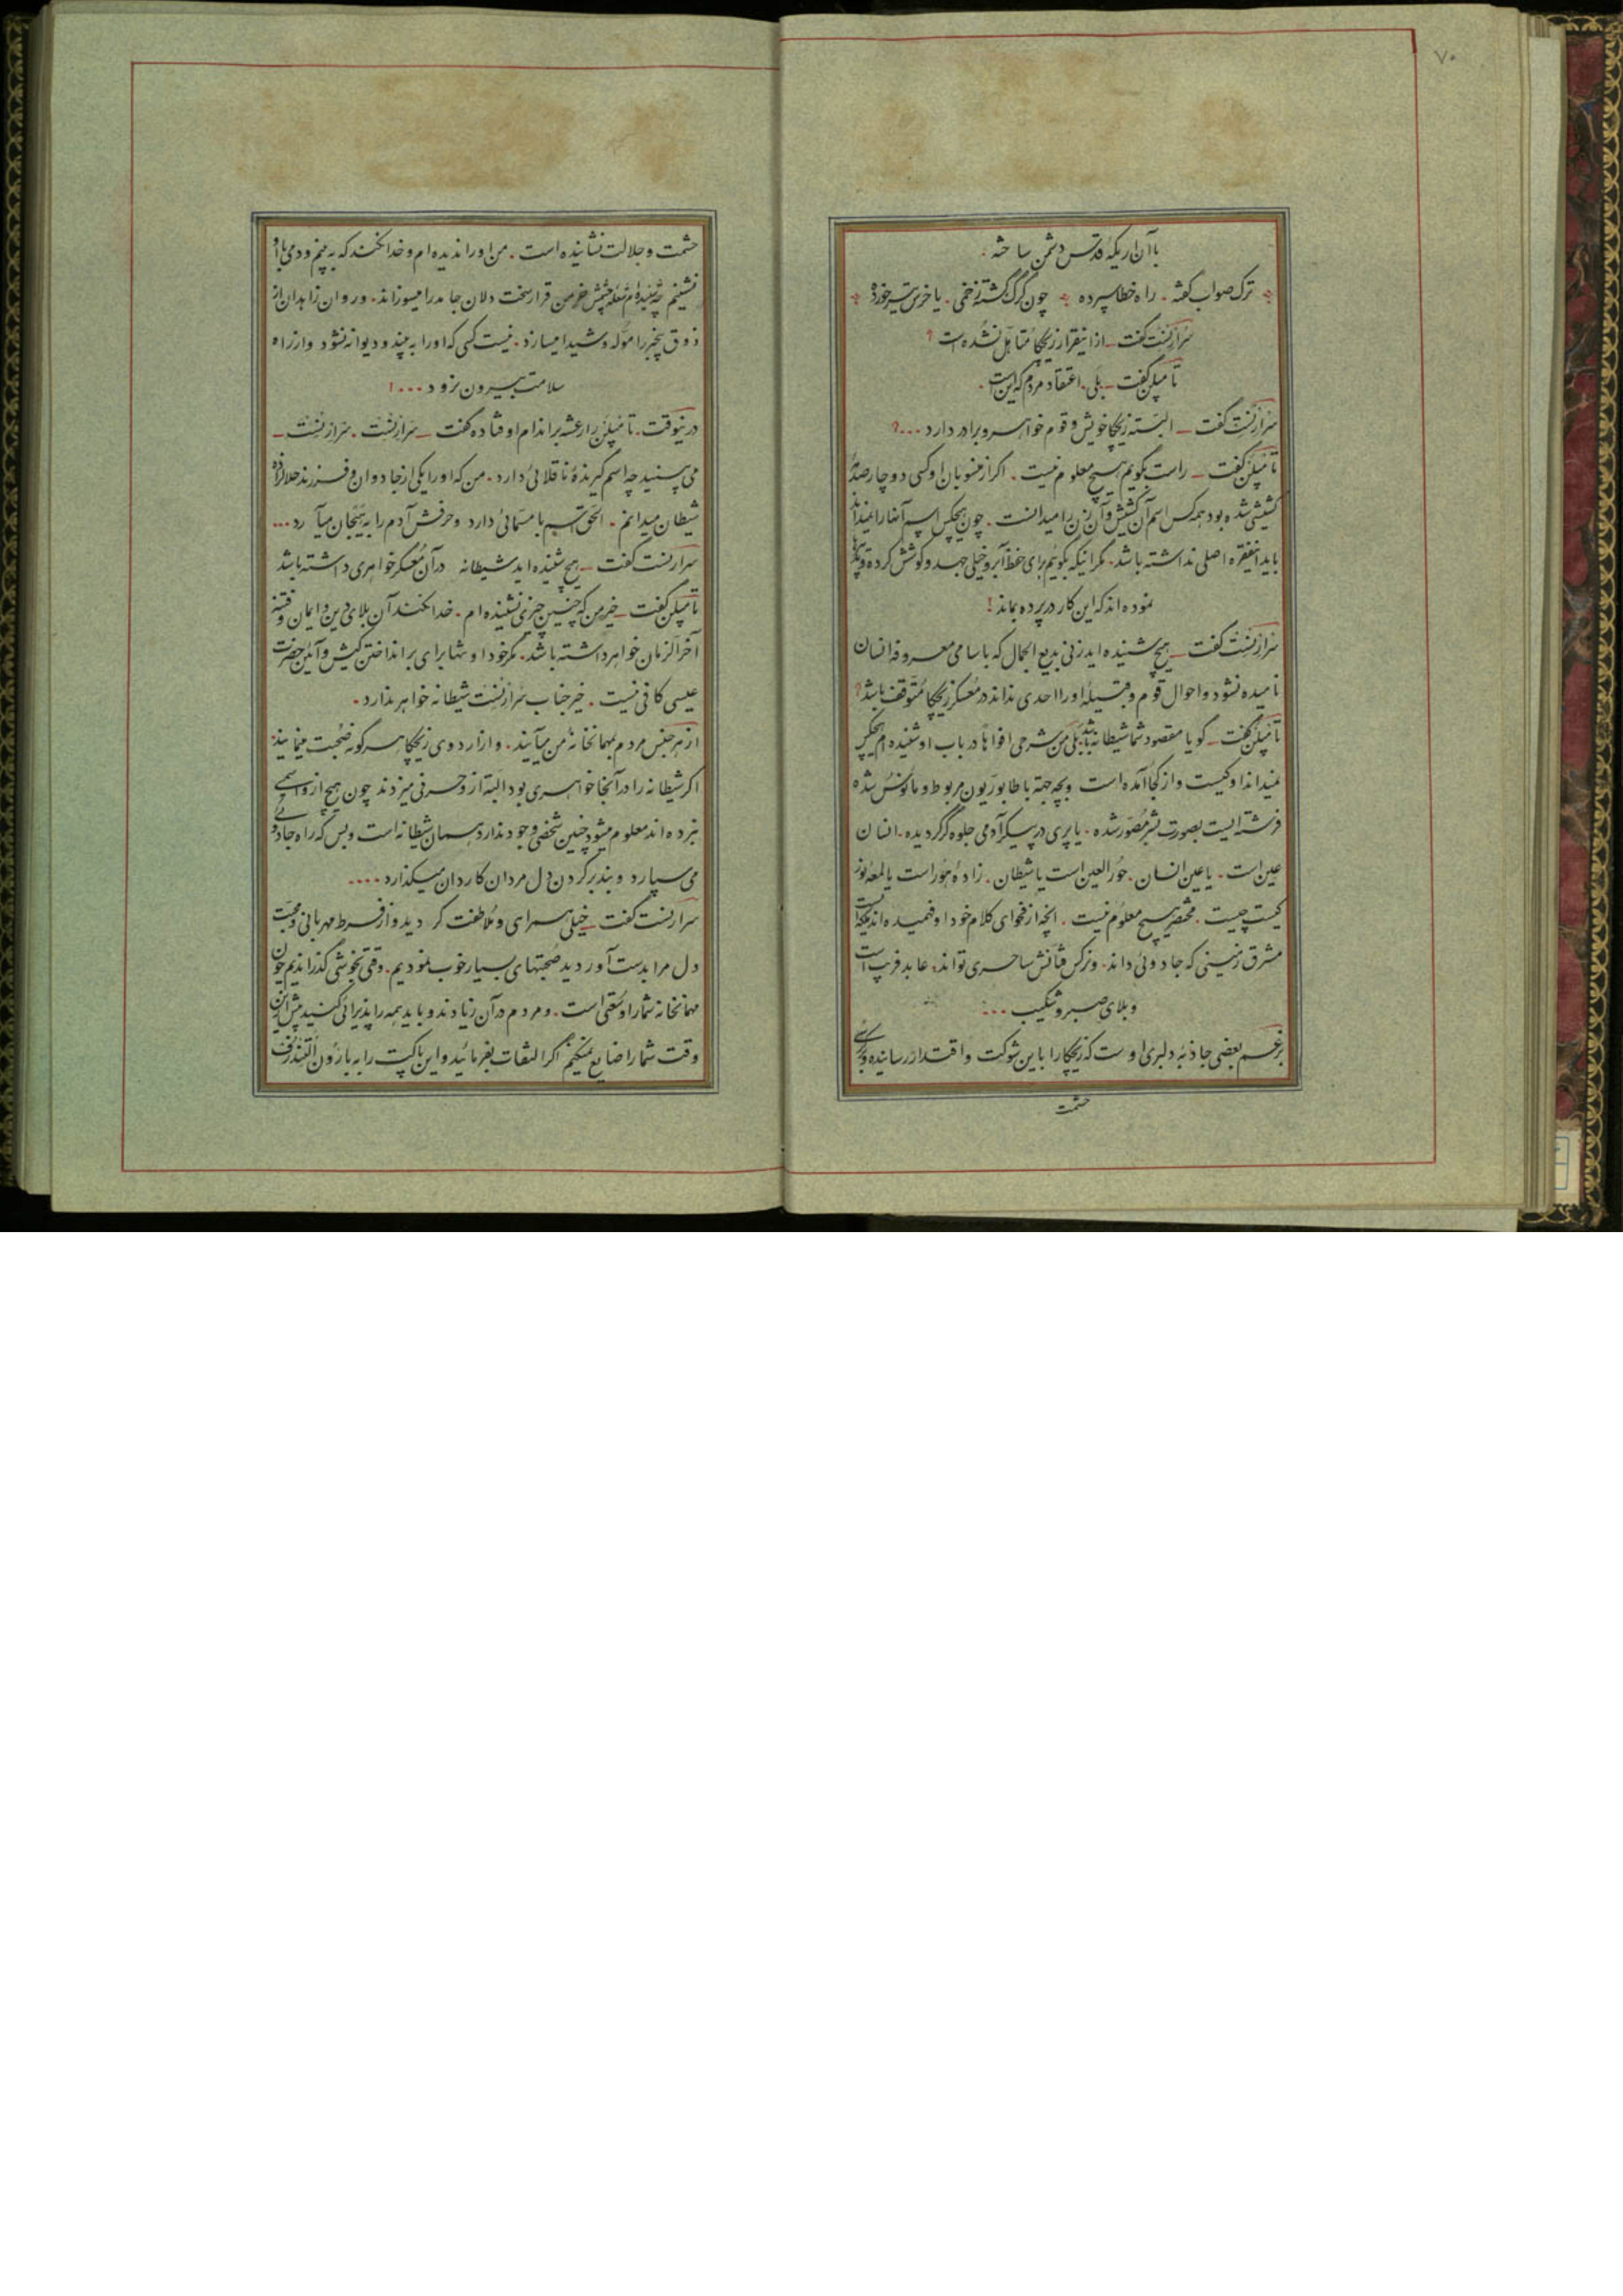 ۷۰
باآن اریکهٔ قدس دشمن ساخته.
ترک صواب گفته. راه خطا سپرده چون گرگ گشته زخمی. یا خرس تیر خورده
سرارنست گفت ــ از اینقرار زیچکا متأهل نشده است ؟
تامپلن گفت ــ بلی. اعتقاد مردم که این است.
سرارنست گفت ــ البته زیچکا خویش و قوم خواهر و برادر دارد ...؟
تامپلن گفت ــ راست بگویم هیچ معلوم نیست. اگر از منسوبان او کسی دوچار صدمهٔ
کشیشی شده بود همه کس اسم آن کشیش و آن زن را میدانست. چون هیچکس اسم آنها را نمیداند
باید اینفقره اصلی نداشته باشد. مگر اینکه بگوئیم برای حفظ آبرو خیلی جهد و کوشش کرده و
نموده اند که این کار در پرده بماند !
سرارنست گفت ــ هیچ شنیده اید زنی بدیع الجمال که باسامی معروفه انسان
نامیده نشود و احوال قوم و قبیلهٔ او را احدی نداند در معسکر زیچکا متوقف باشد؟
تامپلن گفت ــ گویا مقصود شما شیطانه باشد بلی من شرحی افواهاً در باب او شنیده ام هیچکس
نمیداند او کیست و از کجا آمده است و بچه جهة با طابوریون مربوط و مأنوس شده
فرشته ایست بصورت بشر مصور شده. یا پری در پیکر آدمی جلوه گر گردیده. انسان
عین است. یا عین انسان. حور العین است یا شیطان. زادهٔ هور است یا لمعهٔ نور
کیست چیست. مختصر هیچ معلوم نیست. آنچه از فحوای کلام خود او فهمیده اند اینکه از
مشرق زمینی که جادوئی داند. و نرگس فتانش ساحری تواند. عابد فریب است
و بلای صبر و شکیب ...
بزعم بعضی جاذبهٔ دلبری اوست که زیچکا را باین شوکت و اقتدار رسانیده و بر کرسی
حشمت
حشمت و جلالت نشانیده است. من او را ندیده ام و خدا نکند که به بینم و دمی با او
نشینم چه شنیده ام شعلهٔ چشمش خرمن قرار سخت دلان جامد را میسوزاند. و روان زاهدان از
ذوق بیخبر را موله و شیدا میسازد. نیست کسی که او را به بیند و دیوانه نشود و از راه
سلامت بیرون نرود ...!
درینوقت. تامپلن را رعشه بر اندام اوفتاده گفت ــ سرارنست. سرارنست ــ
می بینید چه اسم گیرندهٔ ناقلائی دارد. من که او را یکی از جادوان و فرزند حلالزاده
شیطان میدانم. الحق اسم با مسمائی دارد و حرفش آدم را به هیجان میآرد ...
سرارنست گفت ــ هیچ شنیده اید شیطانه در آن معسکر خواهری داشته باشد
تامپلن گفت ــ خیر من که چنین چیزی نشنیده ام. خدا نکند آن بلای دین و ایمان و فتنهٔ
آخر الزمان خواهر داشته باشد. مگر خود او تنها برای برانداختن کیش و آئین حضرت
عیسی کافی نیست. خیر جناب سرارنست شیطانه خواهر ندارد.
از هر جنس مردم بمهمانخانهٔ من میآیند. و از اردوی زیچکا هر گونه صحبت مینمایند.
اگر شیطانه را در آنجا خواهری بود البته از و حرفی میزدند چون هیچ از و اسمی
نبرده اند معلوم میشود چنین شخصی وجود ندارد همان شیطانه است و بس که راه جادوئی
می سپارد و بند بر گردن دل مردان کاردان میگذارد ....
سرارنست گفت ــ خیلی همراهی و ملاطفت کردید و از فرط مهربانی و محبت
دل مرا بدست آوردید صحبتهای بسیار خوب نمودیم. وقتی بخوشی گذراندیم چون
مهمانخانه شما را وسعتی است. و مردم در آن زیادند و باید همه را پذیرائی کنید پیش از این
وقت شما را ضایع نمیکنم اگر التفات بفرمائید و این پاکت را به بارون التندرف